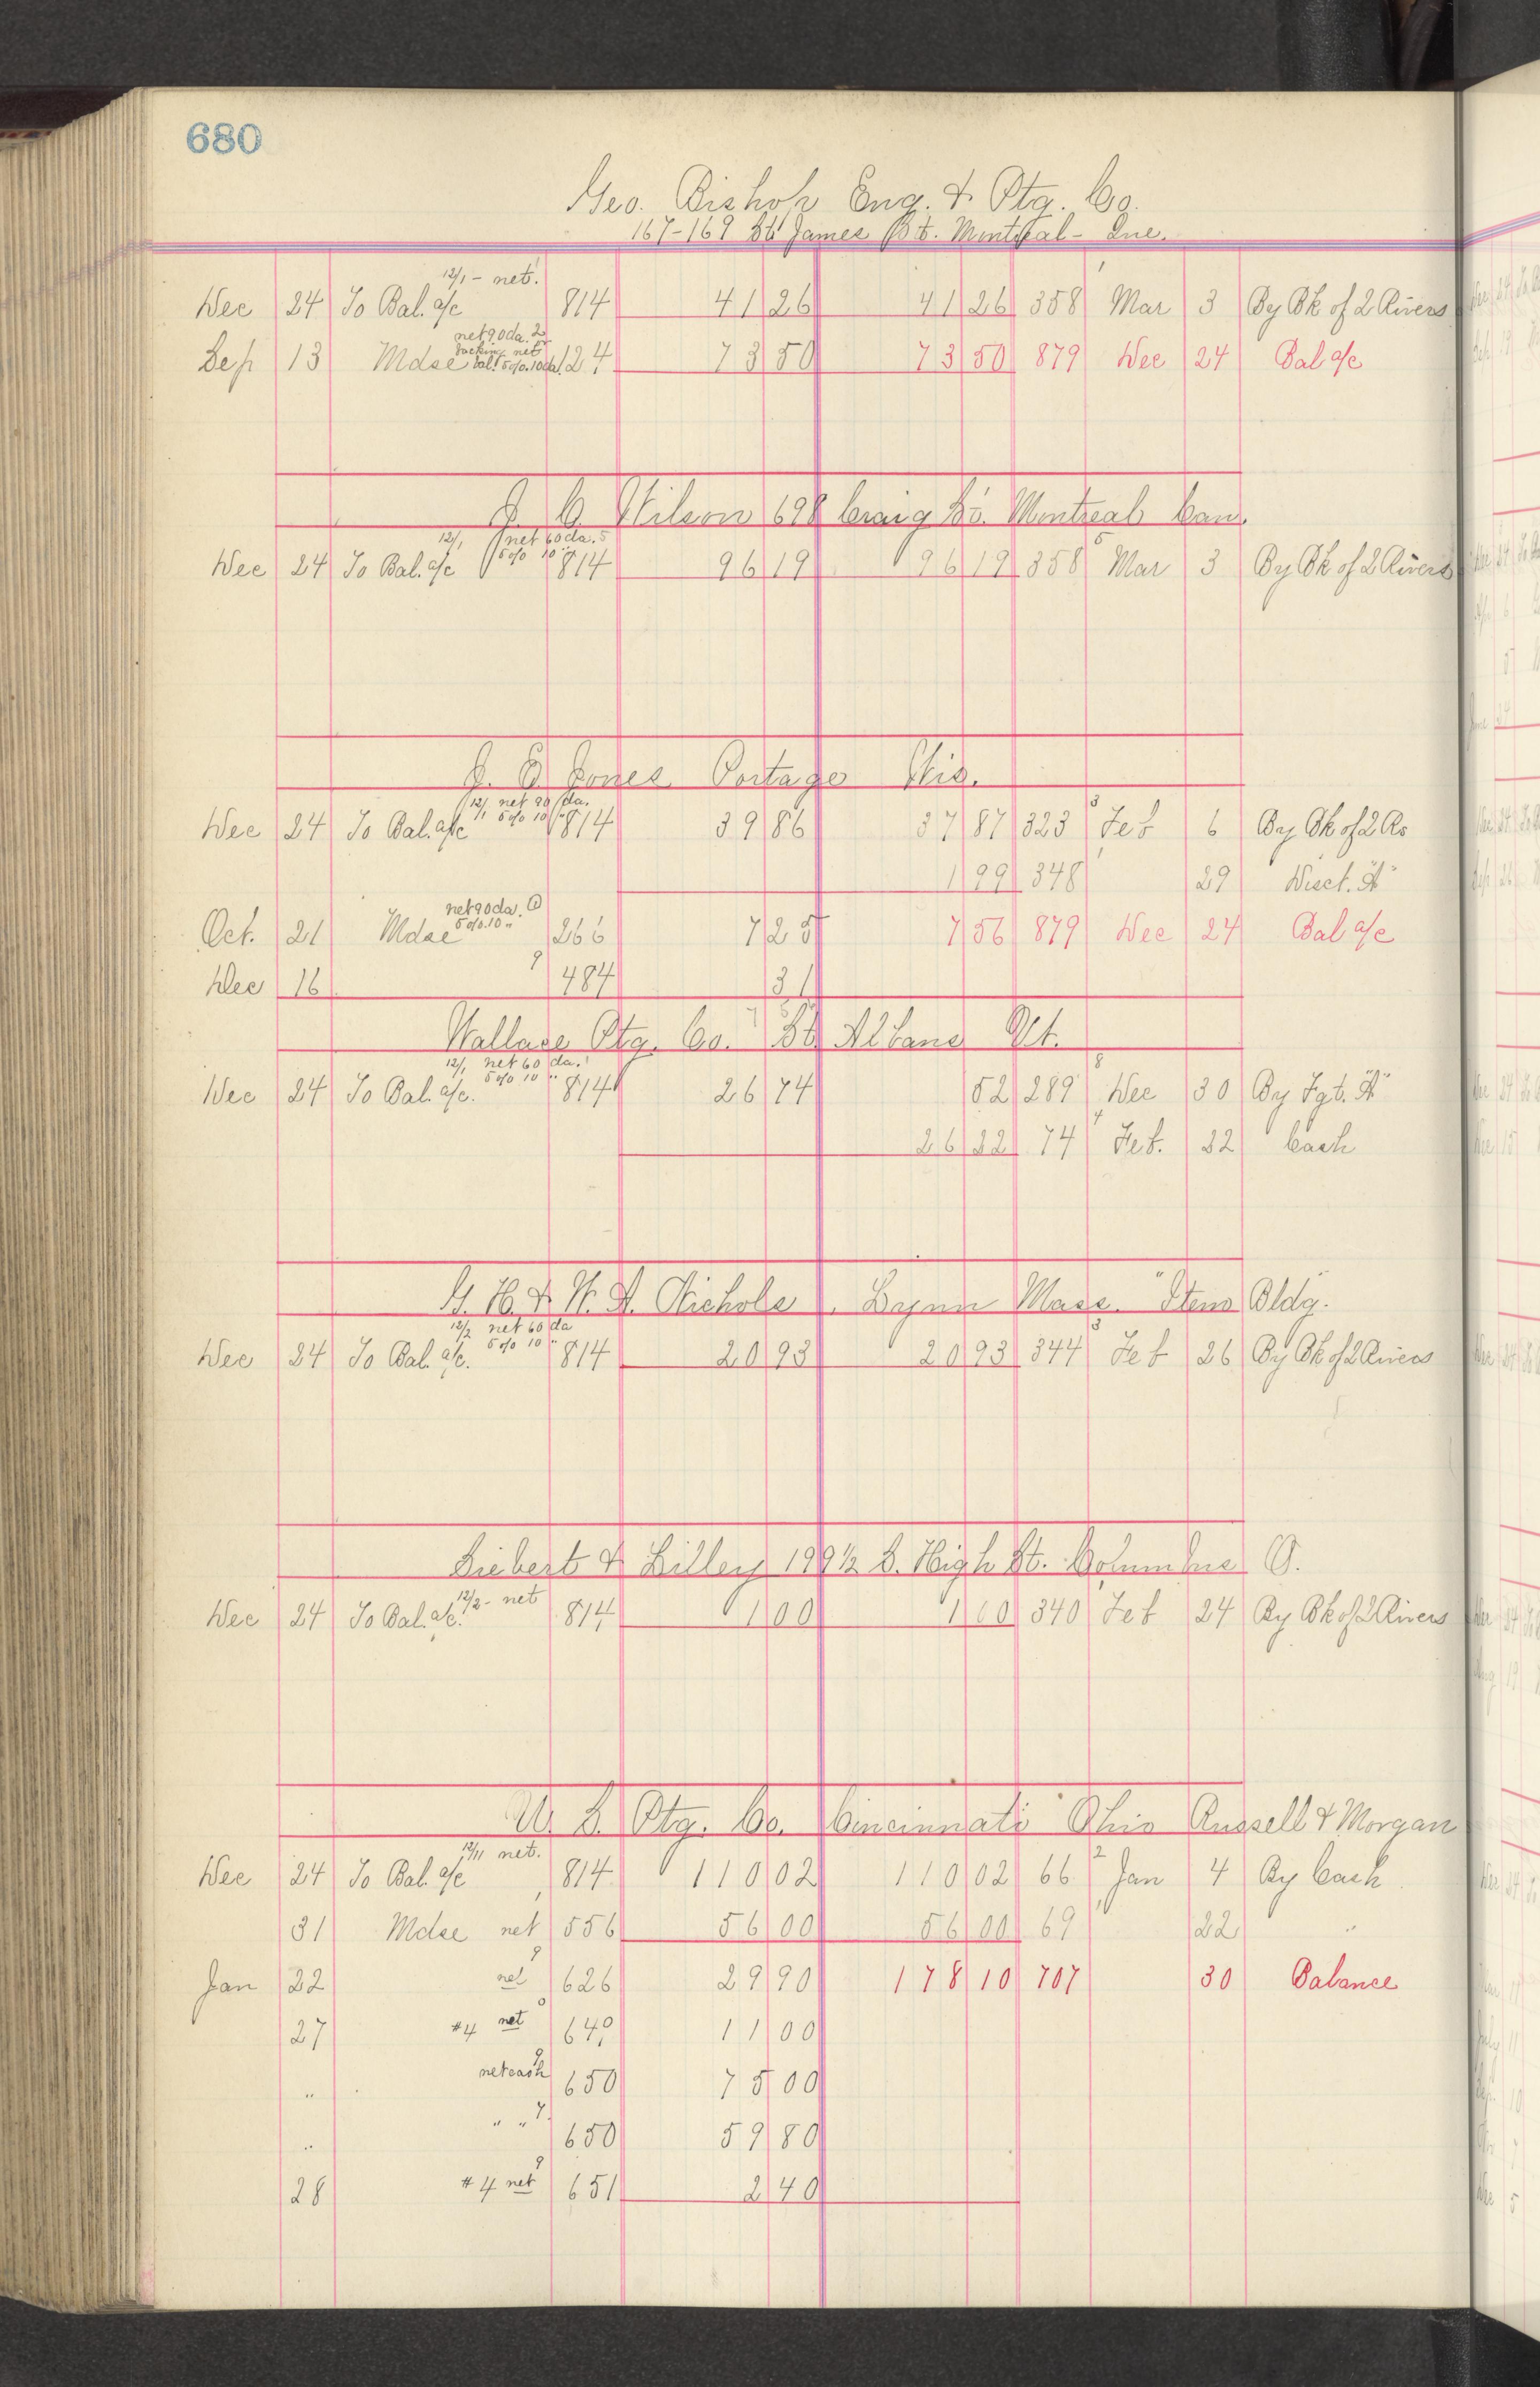 680
Geo. Bishop Eng. & Ptg. Co.
167-169 St James St. Montreal - Que.
12/1 - net.
Dec 24 To Bal. a/c 814 41 26 41 26 358 Mar 3 By Bk of 2 Rivers
net 90 da. 2
net
Sep 13 Mdse bal. 5% 10 da. 124 73 50 73 50 879 Dec 24 Bal a/c
J. C. Wilson 698 Craig St. Montreal Can.
12/1 net 60 da. 5
5% 10 "
Dec 24 To Bal. a/c 814 96 19 96 19 358 Mar 3 By Bk of 2 Rivers
J. E. Jones Portage Wis.
12/1 net 90 da.
5% 10 "
Dec 24 To Bal. a/c 814 39 86 37 87 323 Feb 6 By Bk of 2 Rs
1 99 348 29 Disct. "A"
net 90 da.
5% 10 "
Oct. 21 Mdse 266 7 25 7 56 879 Dec 24 Bal a/c
Dec 16 9 484 31
Wallace Ptg. Co. St Albans Vt.
12/1 net 60 da.
5% 10 "
Dec 24 To Bal. a/c. 814 26 74 52 289 Dec 30 By Fgt. "A"
26 22 74 Feb. 22 Cash
G. H. & W. A. Nichols Lynn Mass. "Item Bldg.
12/2 net 60 da
5% 10 "
Dec 24 To Bal. a/c. 814 20 93 20 93 344 Feb 26 By Bk of 2 Rivers
Siebert & Lilley 199 1/2 S. High St. Columbus O.
12/2 - net
Dec 24 To Bal. a/c. 814 1 00 1 00 340 Feb 24 By Bk of 2 Rivers
U. S. Ptg. Co. Cincinnati Ohio Russell & Morgan
12/11 net.
Dec 24 To Bal. a/c 814 110 02 110 02 66 Jan 4 By Cash
31 Mdse net 556 56 00 56 00 69 22 "
Jan 22 net 9 626 29 90 178 10 707 30 Balance
27 #4 net 640 11 00
" net cash 9 650 75 00
" " " 7 650 59 80
28 #4 net 9 651 2 40